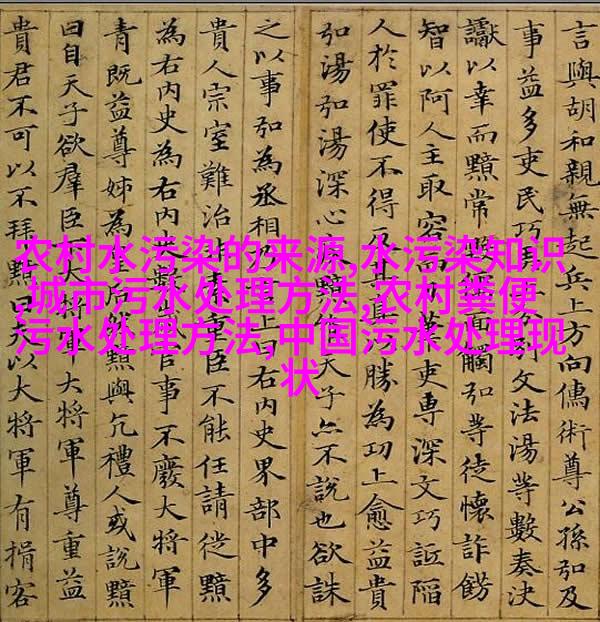 言與胡和親無起兵上方向儒術尊公孫弘及
事益多吏民巧文法湯等數奏決
讞以幸而黯常毀面觸弘等徒懷詐飾
智以阿人主取容筆吏專深文巧詆陷
人於罪使不得反其勝為功上愈益貴
弘湯弘湯深心天子亦不說也欲誅
之以事弘為丞相上曰右內史界部中多
貴人宗室難治重臣不能任請徙黯
為右內史為右內史官事不廢大將軍
青既益尊姊為后黯與亢禮人或說黯
曰自天子欲羣臣大將軍尊重益
貴君不可以不拜黯曰夫以大將軍有揖客
农村水污染的来源,水污染知识
,城市污水处理方法,农村粪便
污水处理方法,中国污水处理现
状